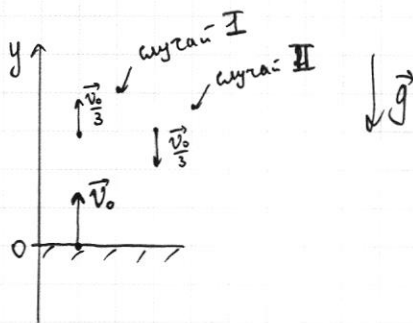 случай I
случай II
y
v⃗₀/3
v⃗₀/3
g⃗
v⃗₀
0